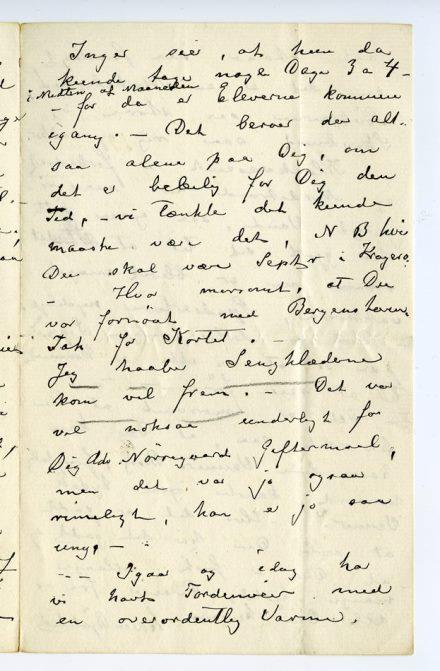 Inger sier, at hun da
kunde tage nogle Dage 3 a 4 –
i Midten af Maaneden
– for da er Eleverne kommen
igang. – Det beroer der alt-
saa alene paa Dig, om
det er beleilig for Dig den
Tid, – vi tænkte det kunde
maaske være det, N B hvis
Du skal være Septr i Kragerø.
– Hvor morsomt, at Du
var fornøiet med Bergensturen
Tak for Kortet. –
Jeg haaber Sengklæderne
kom vel frem. – Det var
vel noksaa underligt for
Dig Adv. Nørregaard Giftermaal,
men det var jo ogsaa
rimeligt, han er jo saa
ung. –
–– Igaar og idag ha
vi havt Tordenveir med
en overordentlig Varme.